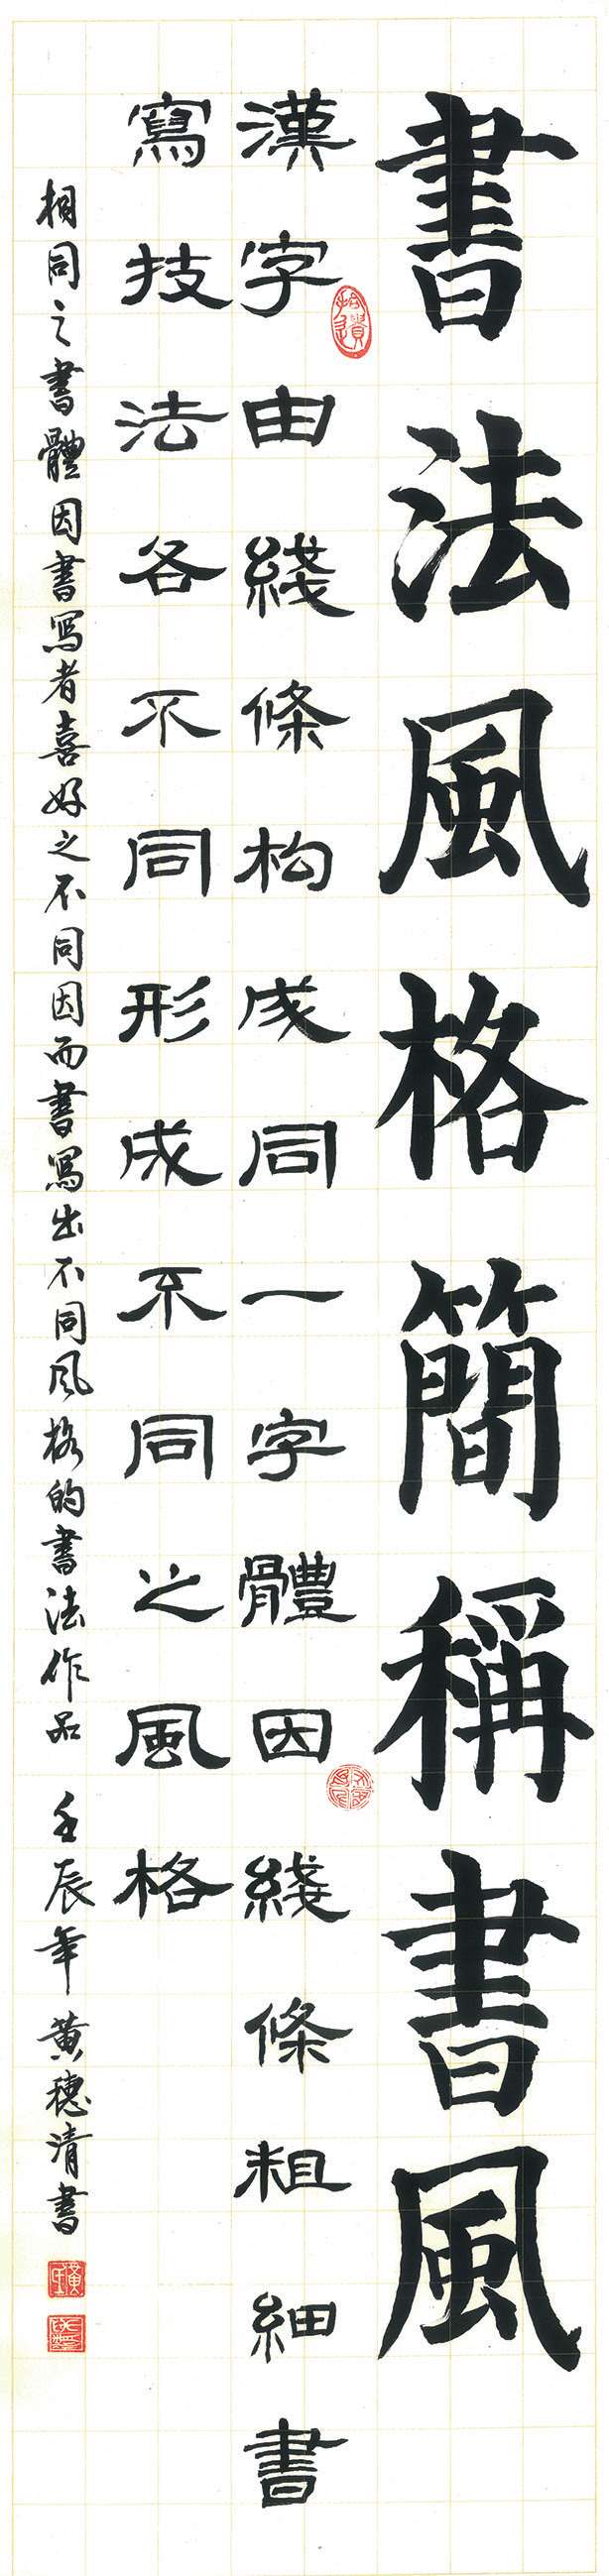 書法風格簡稱書風
漢字由綫條构成同一字體因綫條粗細書
寫技法各不同形成不同之風格
相同之書體因書寫者喜好之不同因而書寫出不同风格的書法作品 壬辰年 黄穗清書